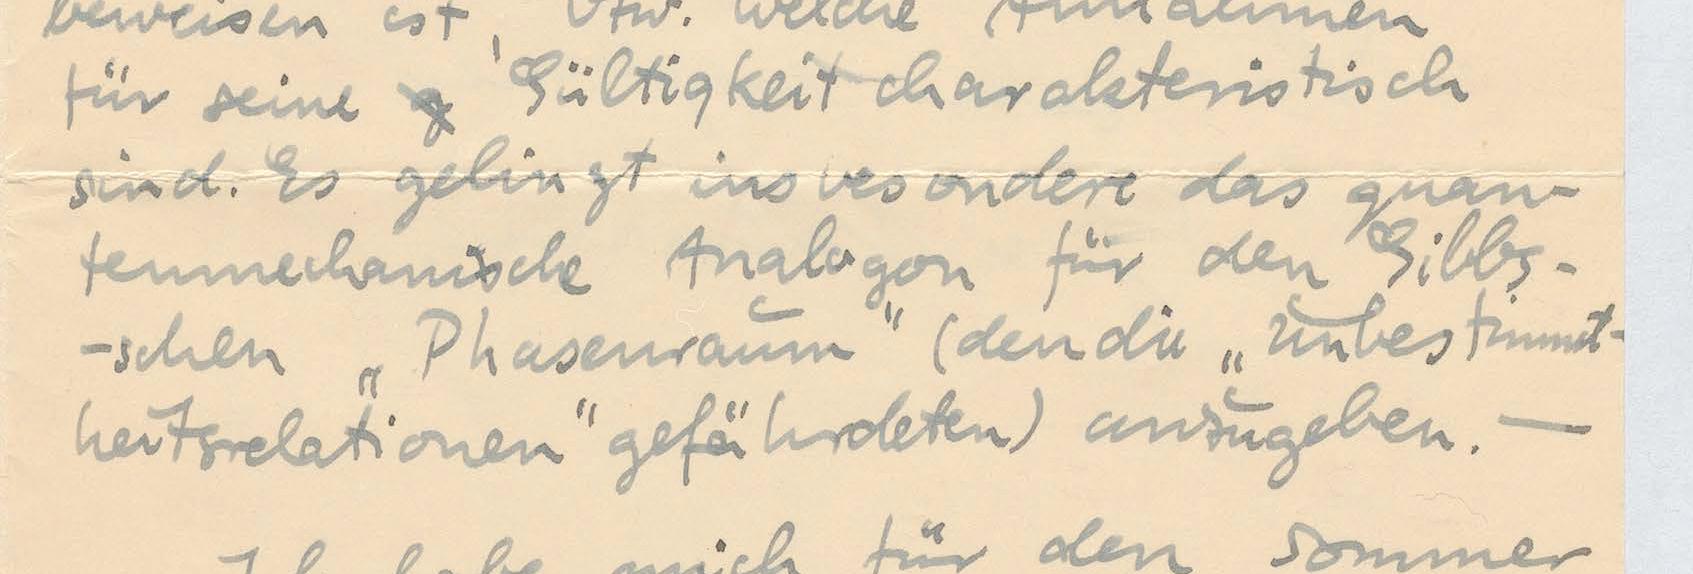 beweisen ist, bzw. welche Annahmen
für seine Gültigkeit charakteristisch
sind. Es gelingt insbesondere das quan-
tenmechanische Analogon für den Gibbs-
-schen „Phasenraum" (den die „Unbestimmt-
heitsrelationen" gefährdeten) anzugeben. —
Ich habe mich für den Sommer